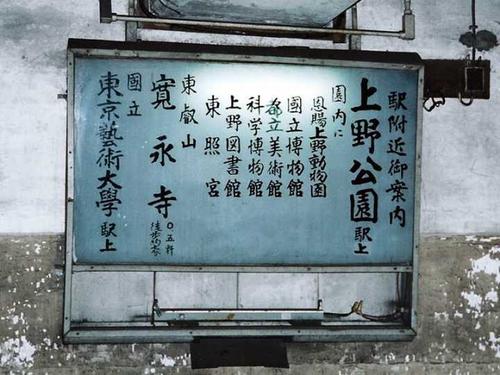 駅附近御案内
上野公園 駅上
園内に
恩賜上野動物園
国立博物館
都立美術館
科学博物館
上野図書館
東照宮
東叡山
寛永寺
〇・五粁
国立
東京藝術大學 駅上